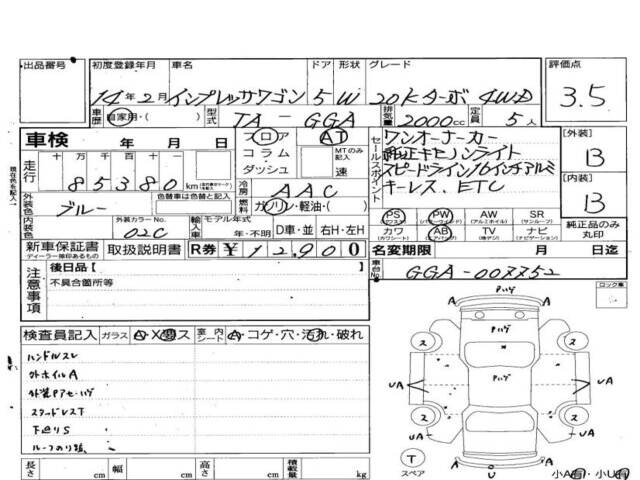 出品番号 初度登録年月 車名 ドア 形状 グレード 評価点
14年2月 インプレッサワゴン 5W 20Kターボ 4WD 3.5
車歴 自家用・( ) 型式 TA-GGA 排気量 2000cc 定員 5人
車検 年 月 日 フロア AT
コラム MTのみ記入
ダッシュ 速
走行 十万 万 千 百 十 一
85380 km
冷房 AAC
燃料 ガソリン・軽油・( )
セールスポイント
ワンオーナーカー
純正キセノンライト
スピードライン16インチアルミ
キーレス、ETC
[外装] B
[内装] B
外装色 ブルー 色替車は色替と記入
内装色 外装カラーNo. 02C
輸入車 モデル年式 年・不明 D車・並 右H・左H
PS PW AW SR
(パワステ) (パワーウィンド) (アルミホイル) (サンルーフ)
カワ AB TV ナビ
(エアバッグ) (ナビゲーション)
純正品のみ丸印
新車保証書 取扱説明書 R券 ¥12,900
ディーラー捺印あるもの
名変期限 月 日迄
注意事項 後日品[ ]
不具合箇所等
車台No. GGA-007752
ロック車
検査員記入 ガラス A・X・ス 室内シート A・コゲ・穴・汚れ・破れ
ハンドルスレ
外ホイルA
外装Pアセハゲ
スタッドレスT
下回りS
Pハゲ
Pハゲ
Pハゲ
A A
A
UA UA
UA UA
A A
U
ス ス
ス ス
T
スペア
小A有・小U有
長さ cm 幅 cm 高さ cm 積載量 kg
現在色を記入